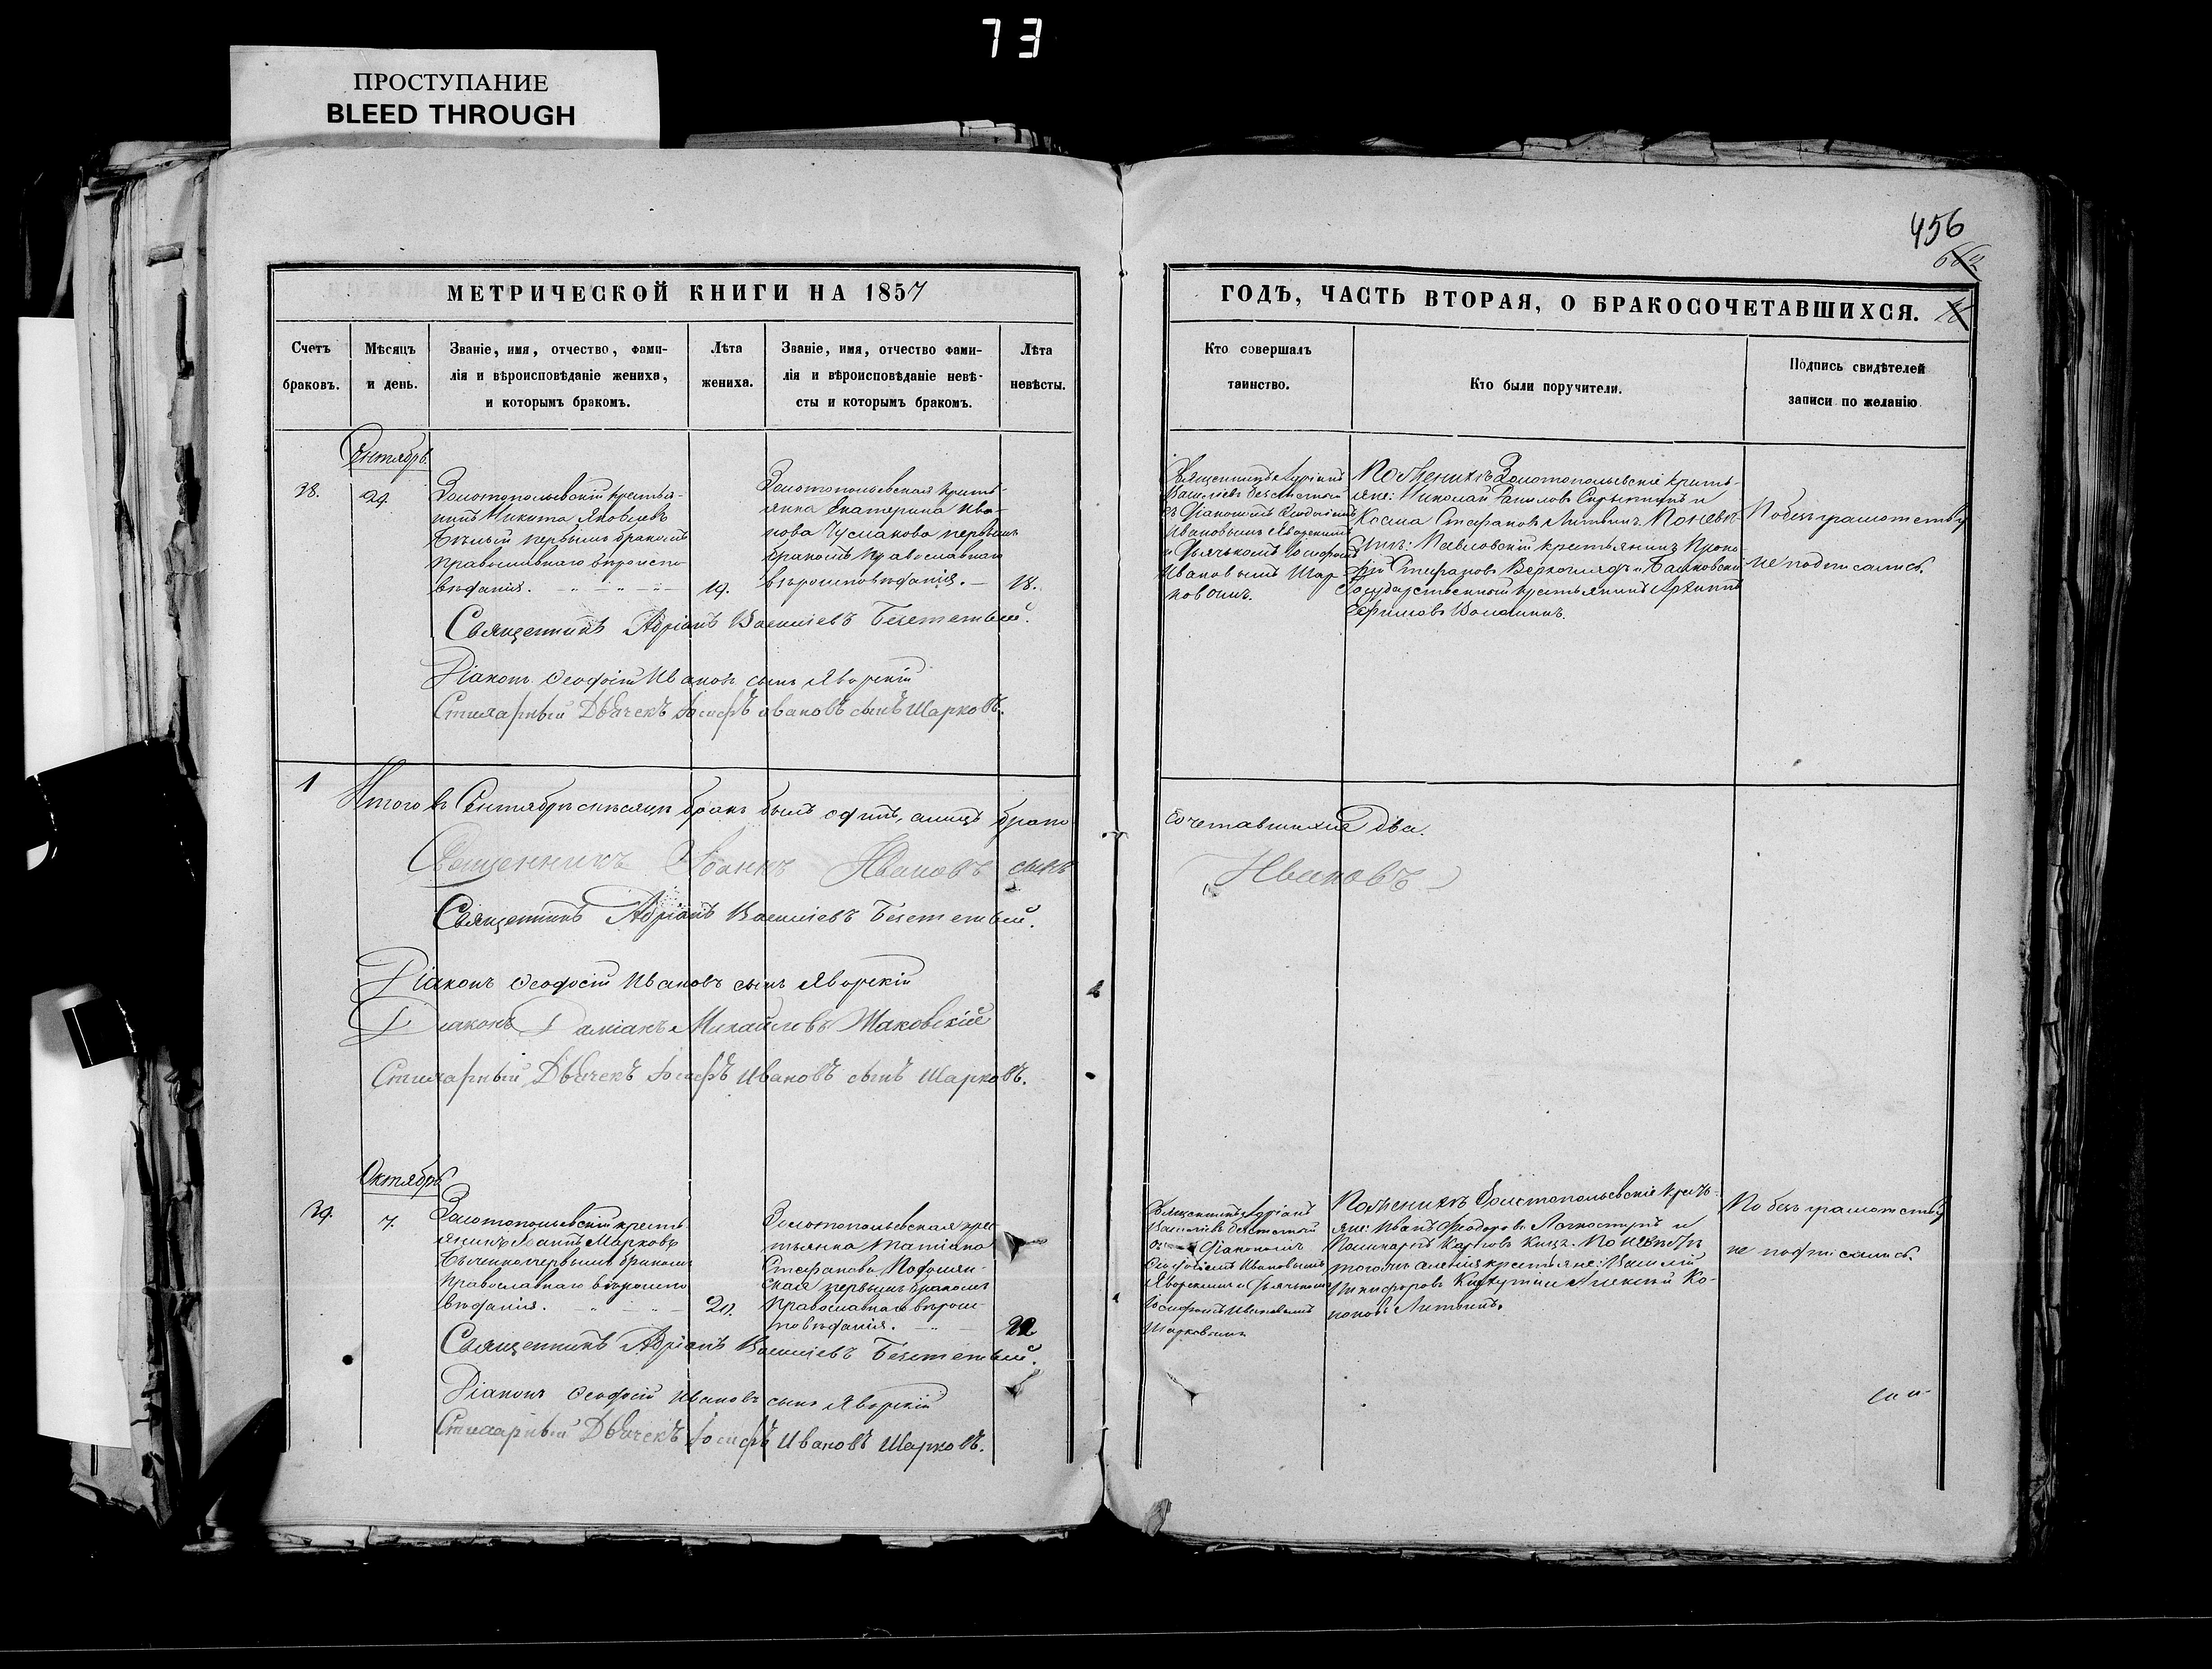 73
ПРОСТУПАНИЕ
BLEED THROUGH
456
МЕТРИЧЕСКОЙ КНИГИ НА 1857
ГОДЪ, ЧАСТЬ ВТОРАЯ, О БРАКОСОЧЕТАВШИХСЯ.
Счетъ
браковъ.
Мѣсяцъ
и день.
Званіе, имя, отчество, фами-
лія и вѣроисповѣданіе жениха,
и которымъ бракомъ.
Лѣта
жениха.
Званіе, имя, отчество фами-
лія и вѣроисповѣданіе невѣ-
сты и которымъ бракомъ.
Лѣта
невѣсты.
Кто совершалъ
таинство.
Кто были поручители.
Подпись свидѣтелей
записи по желанію
Сентябрь
38.
29.
Золотопольевскій крестья-
нинъ Никита Яковлевъ
Бѣлый первымъ бракомъ
православнаго вѣроиспо-
вѣданія.
19.
Золотопольевская кресть-
янка Екатерина Ива-
нова Чусмакова первымъ
бракомъ православнаго
вѣроисповѣданія.
18.
Священникъ Адріанъ
Василіевъ
съ Діакономъ Ѳеодосіемъ
Ивановымъ Яворскимъ
и Дьячкомъ Іосифомъ
Ивановымъ Шар-
ковымъ.
По женихѣ Золотопольевскіе кресть-
яне: Николай и
Козма Стефановъ Литвинъ. По невѣ-
стѣ: Павловскій крестьянинъ Проко-
фій Стефановъ
Государственный крестьянинъ Архипъ
Ефимовъ Волошинъ.
По безграмотству
не подписались.
Священникъ Адріанъ Василіевъ
Діаконъ Ѳеодосій Ивановъ сынъ Яворскій
Стихарный Дьячекъ Іосифъ Ивановъ сынъ Шарковъ.
1
Итого въ Сентябрѣ мѣсяцѣ бракъ былъ одинъ, а лицъ брако
сочетавшихся два.
Священникъ Іоаннъ Ивановъ сынъ
Ивановъ
Священникъ Адріанъ Василіевъ
Діаконъ Ѳеодосій Ивановъ сынъ Яворскій
Діаконъ Даміанъ Михайловъ Маковскій
Стихарный Дьячекъ Іосифъ Ивановъ сынъ Шарковъ.
Октябрь
39.
7.
Золотопольевскій кресть-
янинъ Іоаннъ Марковъ
первымъ бракомъ
православнаго вѣроиспо
вѣданія.
20.
Золотопольевская крес-
тьянка Татіана
Стефанова
первымъ бракомъ
православнаго вѣроис-
повѣданія.
Священникъ Адріанъ
Василіевъ
Діакономъ
Ѳеодосіемъ Ивановымъ
Яворскимъ и Дьячкомъ
Іосифомъ Ивановымъ
Шарковымъ
По женихѣ Золотопольевскіе кресть-
яне: Иванъ Ѳеодоровъ и
Поликарпъ Карповъ По невѣстѣ
тогожъ селенія крестьяне: Василій
Никифоровъ и Алексѣй Ко-
По безграмотству
не подписались.
Священникъ Адріанъ Василіевъ
Діаконъ Ѳеодосій Ивановъ сынъ Яворскій
Стихарный Дьячекъ Іосифъ Ивановъ Шарковъ.